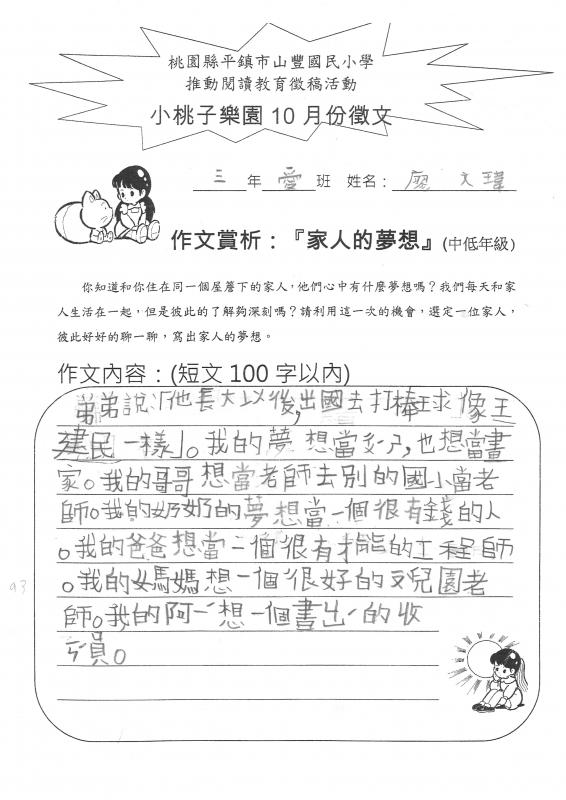 桃園縣平鎮市山豐國民小學
推動閱讀教育徵稿活動
小桃子樂園 10 月份徵文
三 年 愛 班 姓名： 廖 文瑋
作文賞析：『家人的夢想』(中低年級)
你知道和你住在同一個屋簷下的家人，他們心中有什麼夢想嗎？我們每天和家
人生活在一起，但是彼此的了解夠深刻嗎？請利用這一次的機會，選定一位家人，
彼此好好的聊一聊，寫出家人的夢想。
作文內容：(短文 100 字以內)
弟弟說「他長大以後,出國去打棒球像王
建民一樣」。我的夢想當ㄠ，也想當畫
家。我的哥哥想當老師去別的國小當老
師。我的奶奶的夢想當一個很有錢的人
。我的爸爸想當一個很有才能的工程師
。我的媽媽想一個很好的ㄡ兒園老
師。我的阿ㄧˊ想一個書出ㄧˊ的收
ㄎˇ員。
93